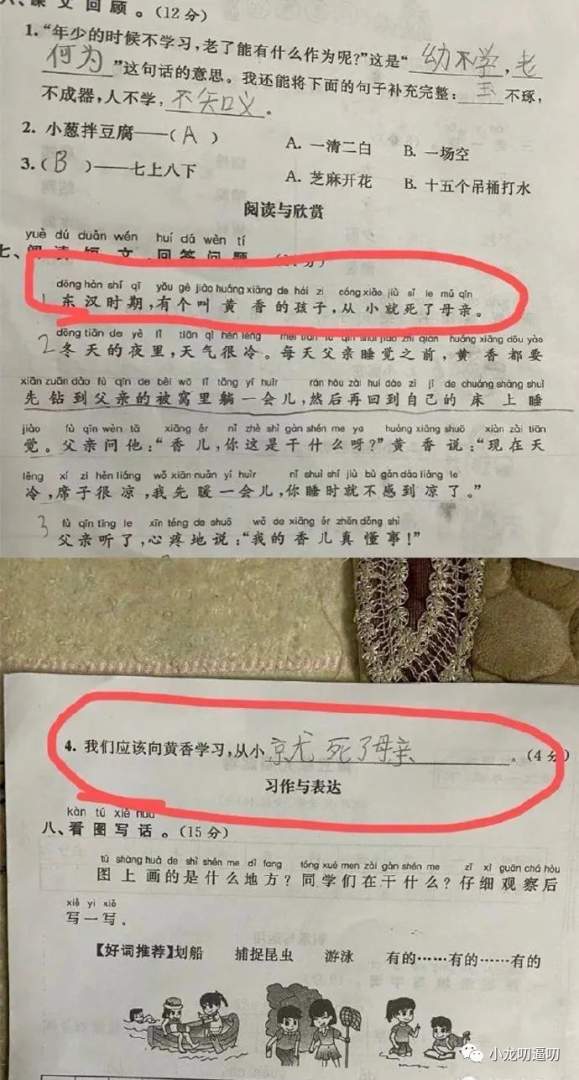 八、课文回顾。(12分)
1.“年少的时候不学习,老了能有什么作为呢?”这是“幼不学,老
何为”这句话的意思。我还能将下面的句子补充完整:玉不琢,
不成器,人不学,不知义。
2. 小葱拌豆腐——( A )
A. 一清二白 B. 一场空
3.( B )——七上八下
A. 芝麻开花 B. 十五个吊桶打水
阅读与欣赏
yuè dú duǎn wén huí dá wèn tí
七、阅读短文,回答问题。
dōng hàn shí qī yǒu gè jiào huáng xiāng de hái zi cóng xiǎo jiù sǐ le mǔ qīn
1 东汉时期,有个叫黄香的孩子,从小就死了母亲。
dōng tiān de yè lǐ tiān qì hěn lěng měi tiān fù qīn shuì jiào zhī qián huáng xiāng dōu yào
2 冬天的夜里,天气很冷。每天父亲睡觉之前,黄香都要
xiān zuān dào fù qīn de bèi wō lǐ tǎng yí huìr rán hòu zài huí dào zì jǐ de chuáng shàng shuì
先钻到父亲的被窝里躺一会儿,然后再回到自己的床上睡
jiào fù qīn wèn tā xiāng ér nǐ zhè shì gàn shén me ya huáng xiāng shuō xiàn zài tiān
觉。父亲问他:“香儿,你这是干什么呀?”黄香说:“现在天
lěng xí zi hěn liáng wǒ xiān nuǎn yí huìr nǐ shuì shí jiù bù gǎn dào liáng le
冷,席子很凉,我先暖一会儿,你睡时就不感到凉了。”
fù qīn tīng le xīn téng de shuō wǒ de xiāng ér zhēn dǒng shì
3 父亲听了,心疼地说:“我的香儿真懂事!”
4. 我们应该向黄香学习,从小就死了母亲。(4分)
习作与表达
kàn tú xiě huà
八、看图写话。(15分)
tú shàng huà de shì shén me dì fang tóng xué men zài gàn shén me zǐ xì guān chá hòu
图上画的是什么地方?同学们在干什么?仔细观察后
xiě yi xiě
写一写。
【好词推荐】划船 捕捉昆虫 游泳 有的……有的……有的
小龙叨逼叨